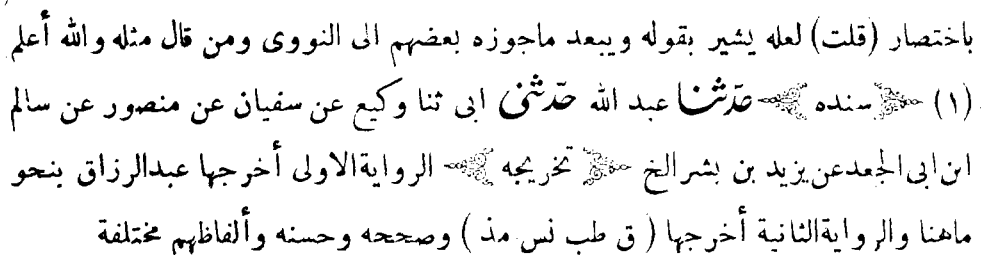 باختصار (قلت) لعله يشير بقوله ويبعد ماجوزه بعضهم الى النووى ومن قال مثله والله أعلم
(١) سنده حدثنا عبد الله حدثنى ابى ثنا وكيع عن سفيان عن منصور عن سالم
ابن ابى الجعد عن يزيد بن بشر الخ تخريجه الرواية الاولى أخرجها عبد الرزاق بنحو
ماهنا والرواية الثانية أخرجها ( ق طب نس مذ ) وصححه وحسنه وألفاظهم مختلفة